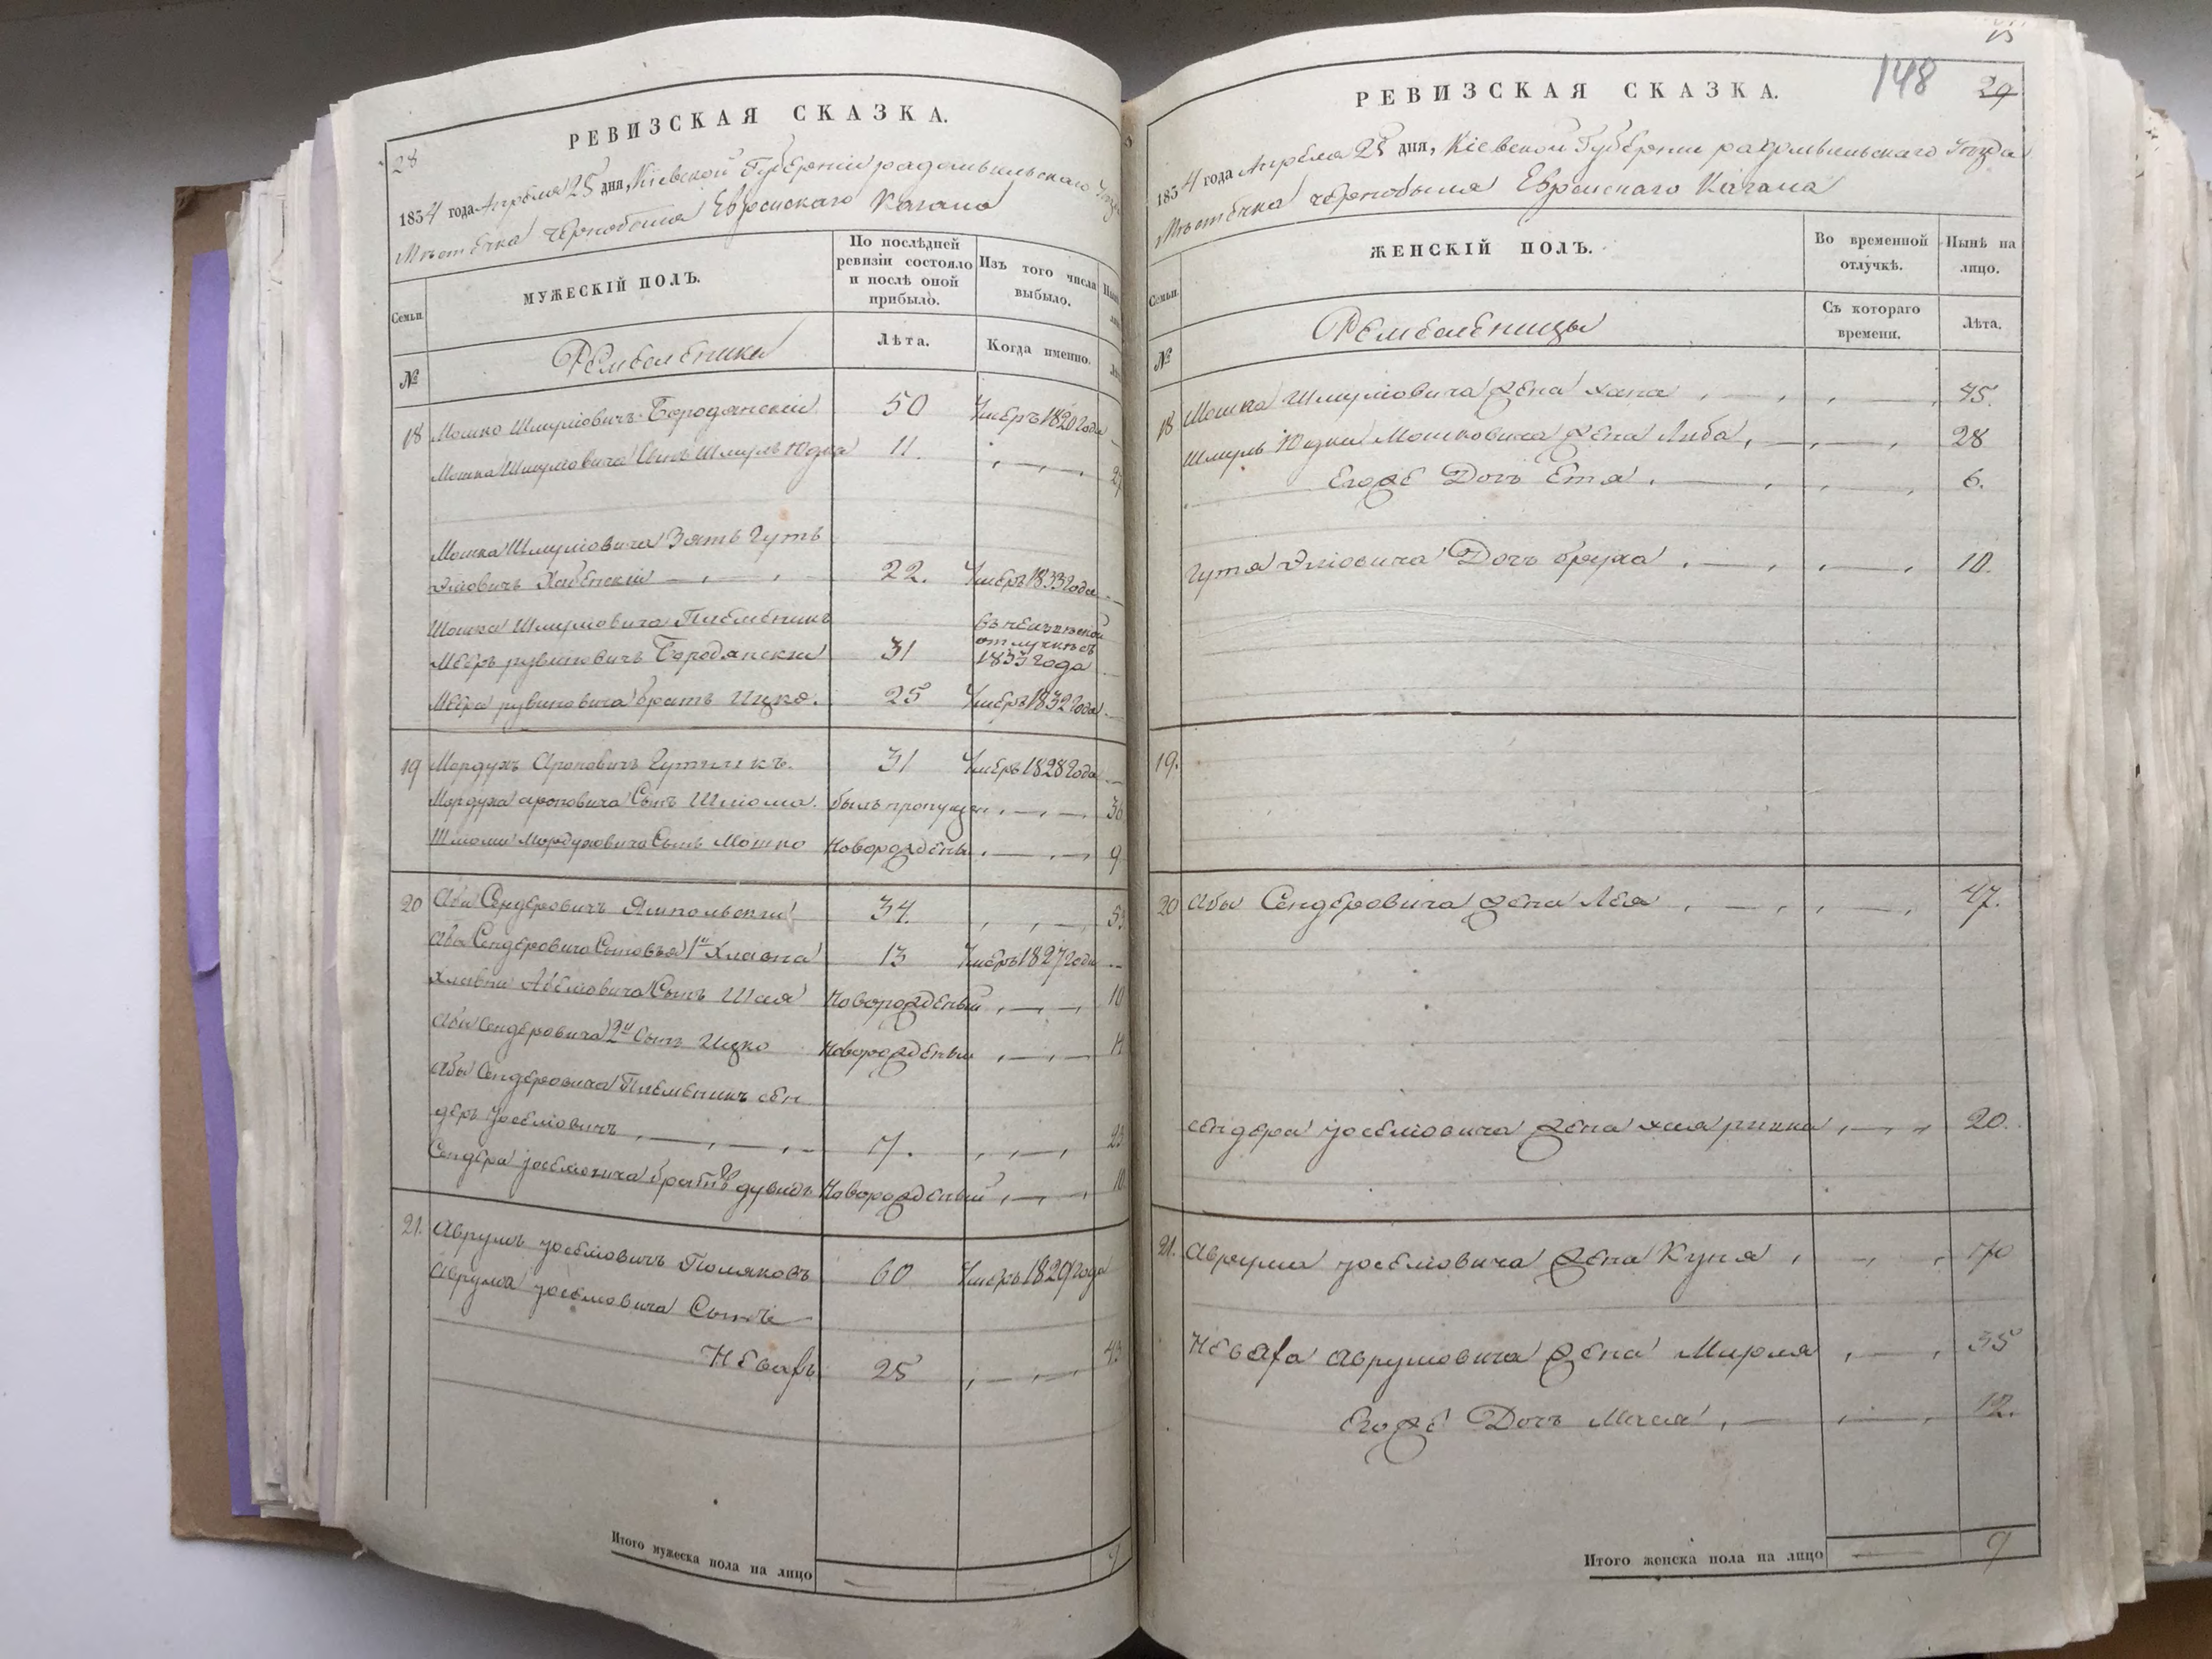 РЕВИЗСКАЯ СКАЗКА.
28
1834 года Апреля 25 дня, Кіевской Губерніи радомысльскаго
Мѣстечка Чернобыля Еврейскаго Кагала
Семьи
МУЖЕСКІЙ ПОЛЪ.
По послѣдней ревизіи состояло и послѣ оной прибыло.
Изъ того числа выбыло.
№
Лѣта.
Когда именно.
18 Мошко Шмуліовичъ Бородянскій 50 Умеръ 1820 года
Мошка Шмуліовича Сынъ Шмуль Юдка 11.
Мошка Шмуліовича Зять Гутъ
Хабенскій 22. Умеръ 1833 года
Мошка Шмуліовича Племеникъ
въ
отлучке съ
Мееръ рувиновичъ Бородянскій 31 1833 года
Меера рувиновича братъ Ицко. 25 Умеръ 1832 года
19 Мордухъ Ароновичъ Гутникъ. 31 Умеръ 1828 года
Мордуха ароновича Сынъ Шліома. былъ пропущен 36
Шліомы Мордуховича Сынъ Мошко Новорожденый 9
20 Абы Сендеровичъ Ямпольскій 34.
Абы Сендеровича Сыновья 1й Хлавна 13 Умеръ 1827 года
Хлавны Абеліовича Сынъ Шая Новорожденый 10
Абы Сендеровича 2й Сынъ Ицко Новорожденый
Абы Сендеровича Племеникъ сен
деръ Иоселіовичъ 7.
Сендера Иоселіовича братъ дувидъ Новорожденый 10
21. Аврумъ Иоселіовичъ Поляковъ 60 Умеръ 1829 года
Аврума Иоселіовича Сынъ
25
Итого мужеска пола на лицо
РЕВИЗСКАЯ СКАЗКА.
148 29
1834 года Апреля 25 дня, Кіевской Губерніи радомысльскаго Уезда
Мѣстечка Чернобыля Еврейскаго Кагала
Семьи
ЖЕНСКІЙ ПОЛЪ.
Во временной отлучкѣ.
Нынѣ на лицо.
№
Съ котораго времени.
Лѣта.
18 Мошка Шмуліовича жена хана 45.
Шмуль Юдки Мошковича жена Либа 28
Егоже Дочь Етя 6.
Гутя Дочь бруха 10.
19.
20 Абы Сендеровича жена Лея 47.
сендера Иоселіовича жена хая 20.
21. Аврума Иоселіовича жена Куня 70
Аврумовича жена Мирля 35
Егоже Дочь 12.
Итого женска пола на лицо 9